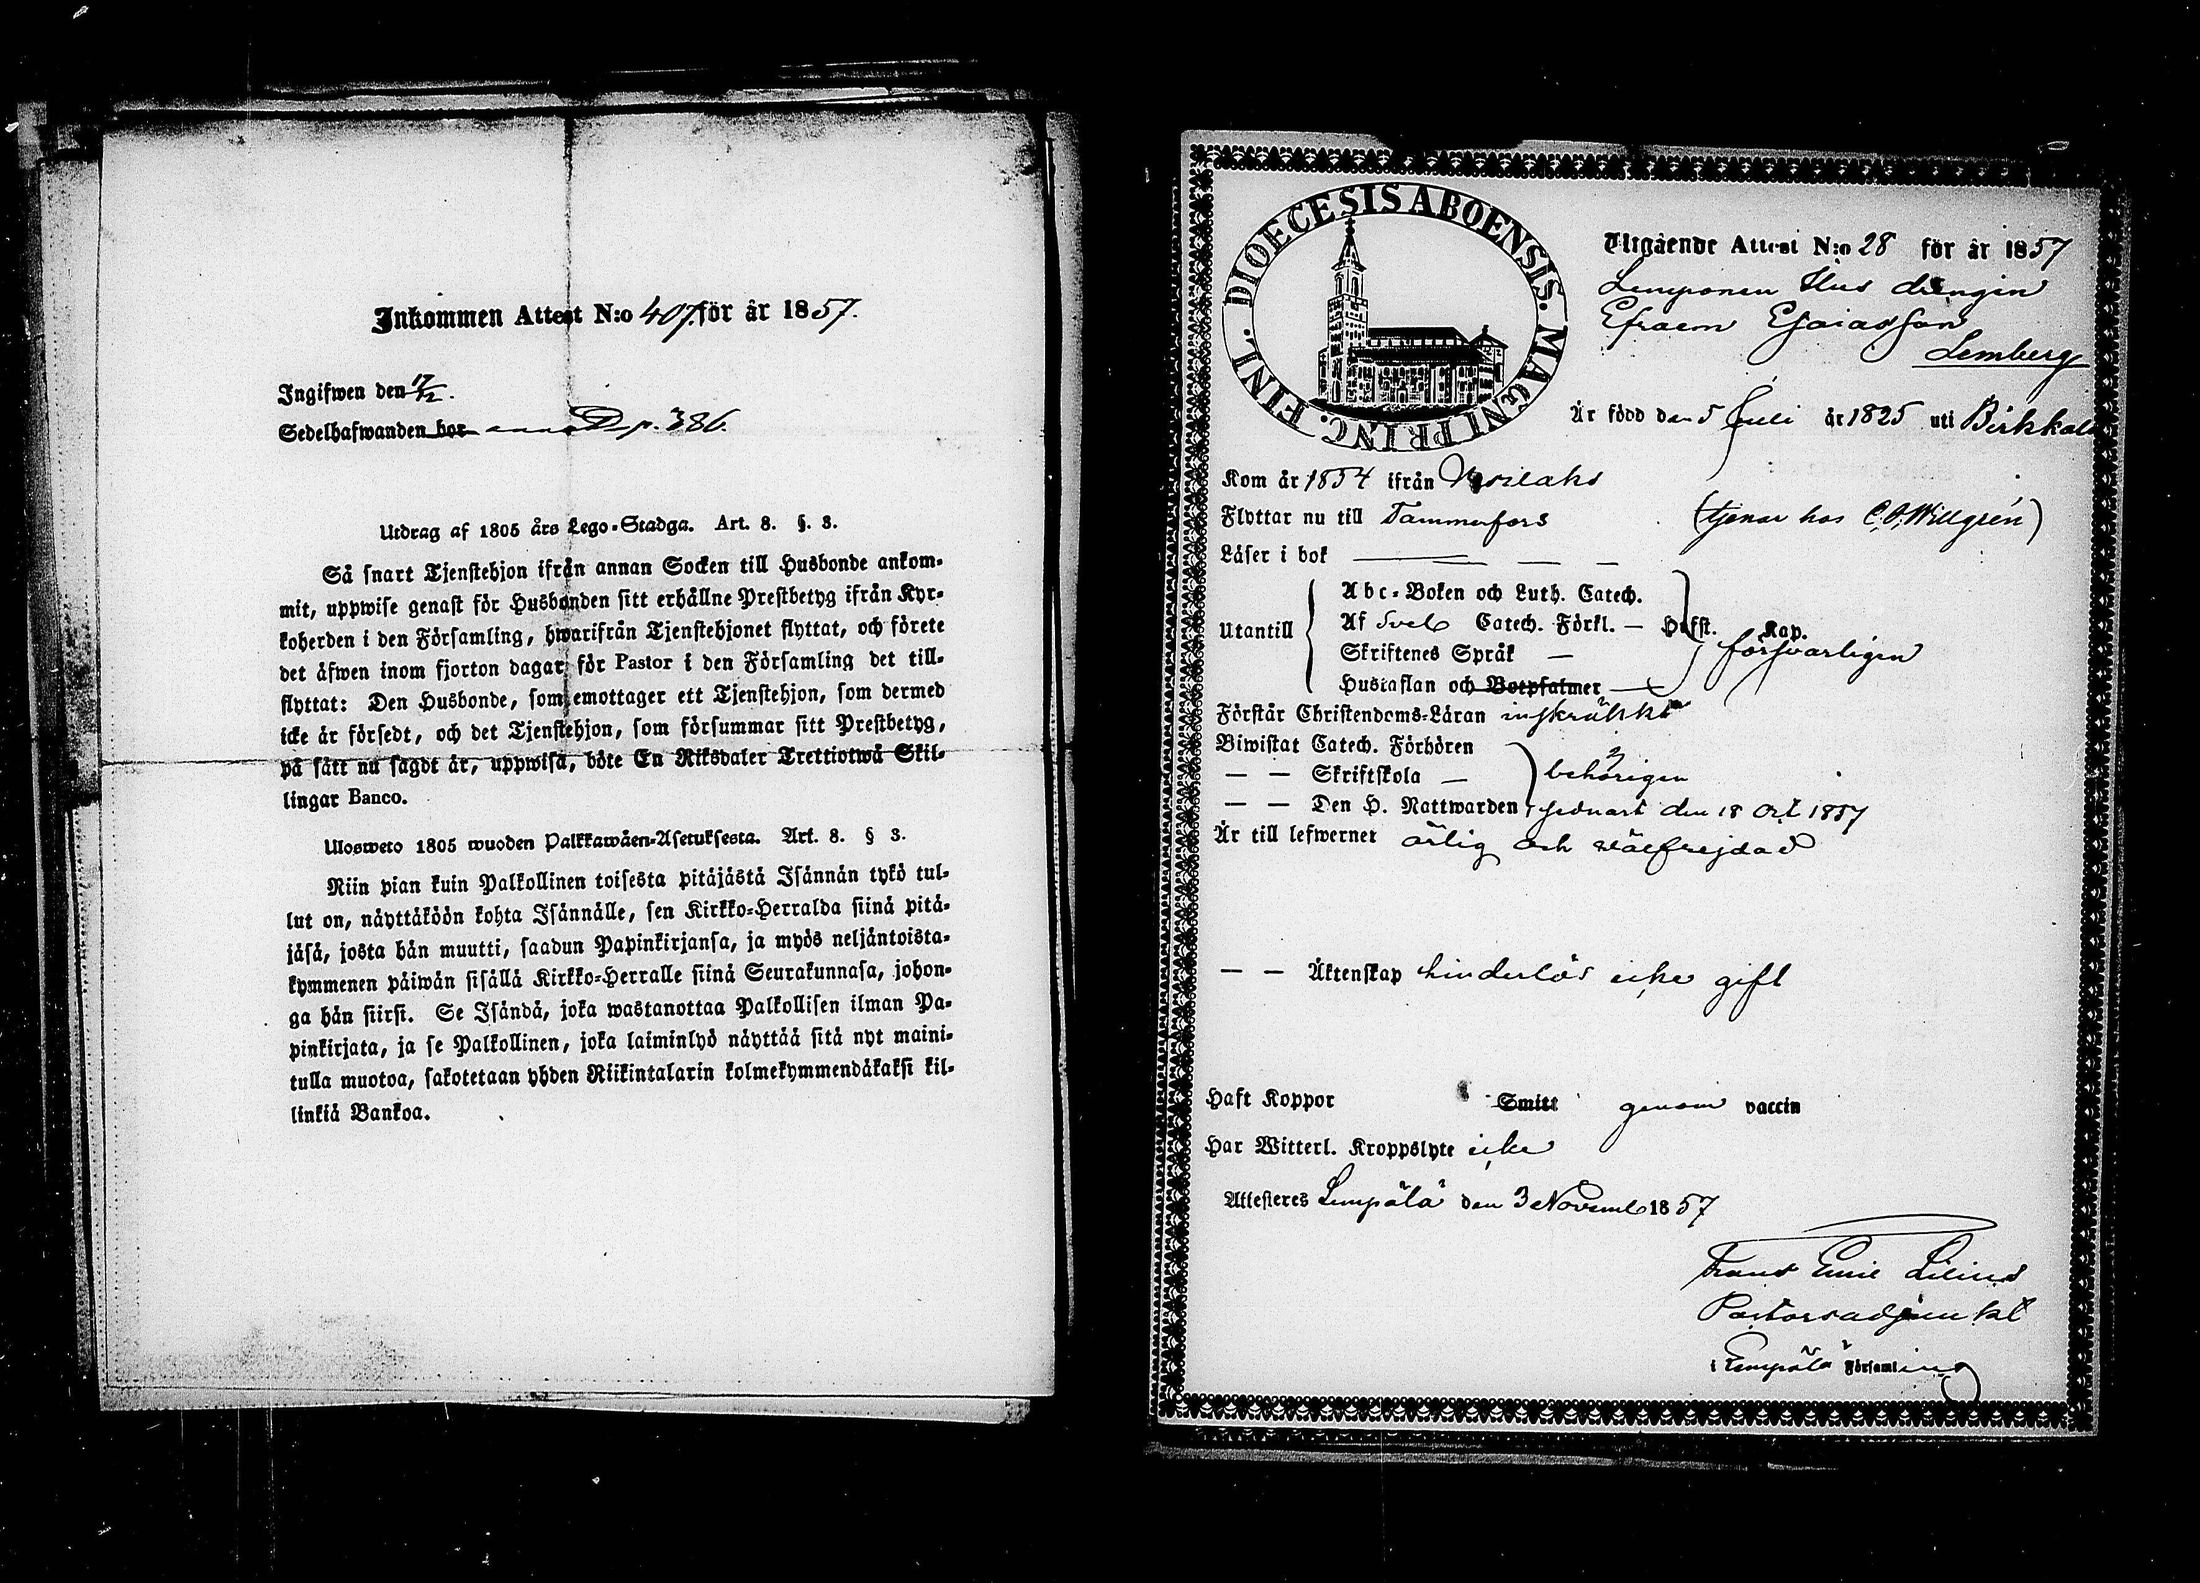 Inkommen Attest N:o 407. för år 1857.
Ingifwen den 17/12.
Sedelhafwanden bor anno D. p. 386.
Utdrag af 1805 års Lego-Stadga. Art. 8. §. 3.
Så snart Tjenstehjon ifrån annan Socken till Husbonde ankom-
mit, uppwise genast för Husbonden sitt erhållne Prestbetyg ifrån Kyr-
koherden i den Församling, hwarifrån Tjenstehjonet flyttat, och förete
det äfwen inom fjorton dagar för Pastor i den Församling det till-
flyttat: Den Husbonde, som emottager ett Tjenstehjon, som dermed
icke är försedt, och det Tjenstehjon, som försummar sitt Prestbetyg,
på sätt nu sagdt är, uppwisa, böte En Riksdaler Trettiotwå Skil-
lingar Banco.
Ulosweto 1805 wuoden Palkkawäen-Asetuksesta. Art. 8. § 3.
Niin pian kuin Palkollinen toisesta pitäjästä Isännän tykö tul-
lut on, näyttäköön kohta Isännälle, sen Kirkko-Herralda siinä pitä-
jäsä, josta hän muutti, saadun Papinkirjansa, ja myös neljäntoista-
kymmenen päiwän sisällä Kirkko-Herralle siinä Seurakunnasa, johon-
ga hän siirsi. Se Isändä, joka wastanottaa Palkollisen ilman Pa-
pinkirjata, ja se Palkollinen, joka laiminlyö näyttää sitä nyt maini-
tulla muotoa, sakotetaan yhden Riikintalarin kolmekymmendäkaksi kil-
linkiä Bankoa.
DIOECESIS ABOENSIS. MAGNI PRINC. FINL.
Utgående Attest N:o 28 för år 1857
Lemponen Hus drengen
Efraem Esaiasson
Lemberg
Är född den 5 Juli år 1825 uti Birkkala
Kom år 1854 ifrån Wesilaks
Flyttar nu till Tammerfors (tjenar hos C. O. Willgrén)
Läser i bok
Utantill
Abc-Boken och Luth. Catech.
Af Sveb Catech. Förkl. — Hufst. Kap.
Skriftenes Språk — försvarligen
Hustaflan och Botpsalmer
Förstår Christendoms-Läran inskränkt
Biwistat Catech. Förhören
— — Skriftskola — behörigen
— — Den H. Nattwarden, sednast den 18 Oct 1857
Är till lefwernet ärlig och välfrejdad
— — Äktenskap hinderlös icke gift
Haft Koppor Smitt genom vaccin
Har Witterl. Kroppslyte icke
Attesteres Lempälä den 3 Novemb 1857
Frans Emil Lilius
Pastorsadjunkt
i Lempälä Församling